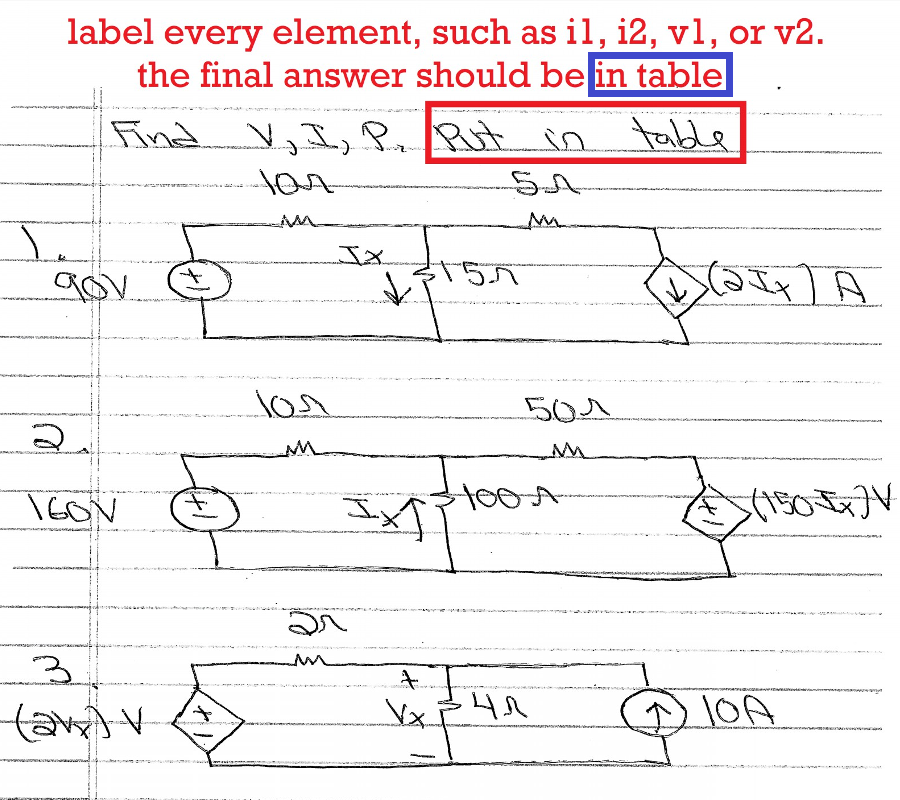 label every element, such as i1, i2, v1, or v2.
the final answer should be in table
Find V, I, P. Put in table
10Ω 5Ω
1.
90V + − Ix ↓ 15Ω ↓ (2Ix) A
10Ω 50Ω
2.
160V + − Ix ↑ 100Ω + − (150 Ix) V
2Ω
3.
(2Vx) V + − + Vx − 4Ω ↑ 10A